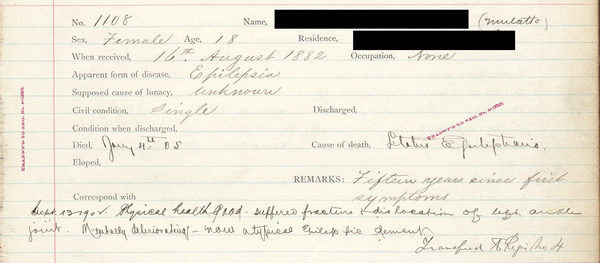 No. 1108 Name, (mulatto)
Sex, Female Age, 18 Residence,
When received, 16th August 1882 Occupation, None
Apparent form of disease, Epilepsia
Supposed cause of lunacy, Unknown
Civil condition, Single Discharged,
Condition when discharged,
Died, Jany 4th 05 Cause of death, Status Epilepticus.
Eloped,
REMARKS: Fifteen years since first
symptoms
Correspond with
Sept. 13-1901. Physical health good - suffered fracture & dislocation of left ankle
joint. Mentally deteriorating - now a typical Epileptic dement.
Transfrd to Regis No 4.